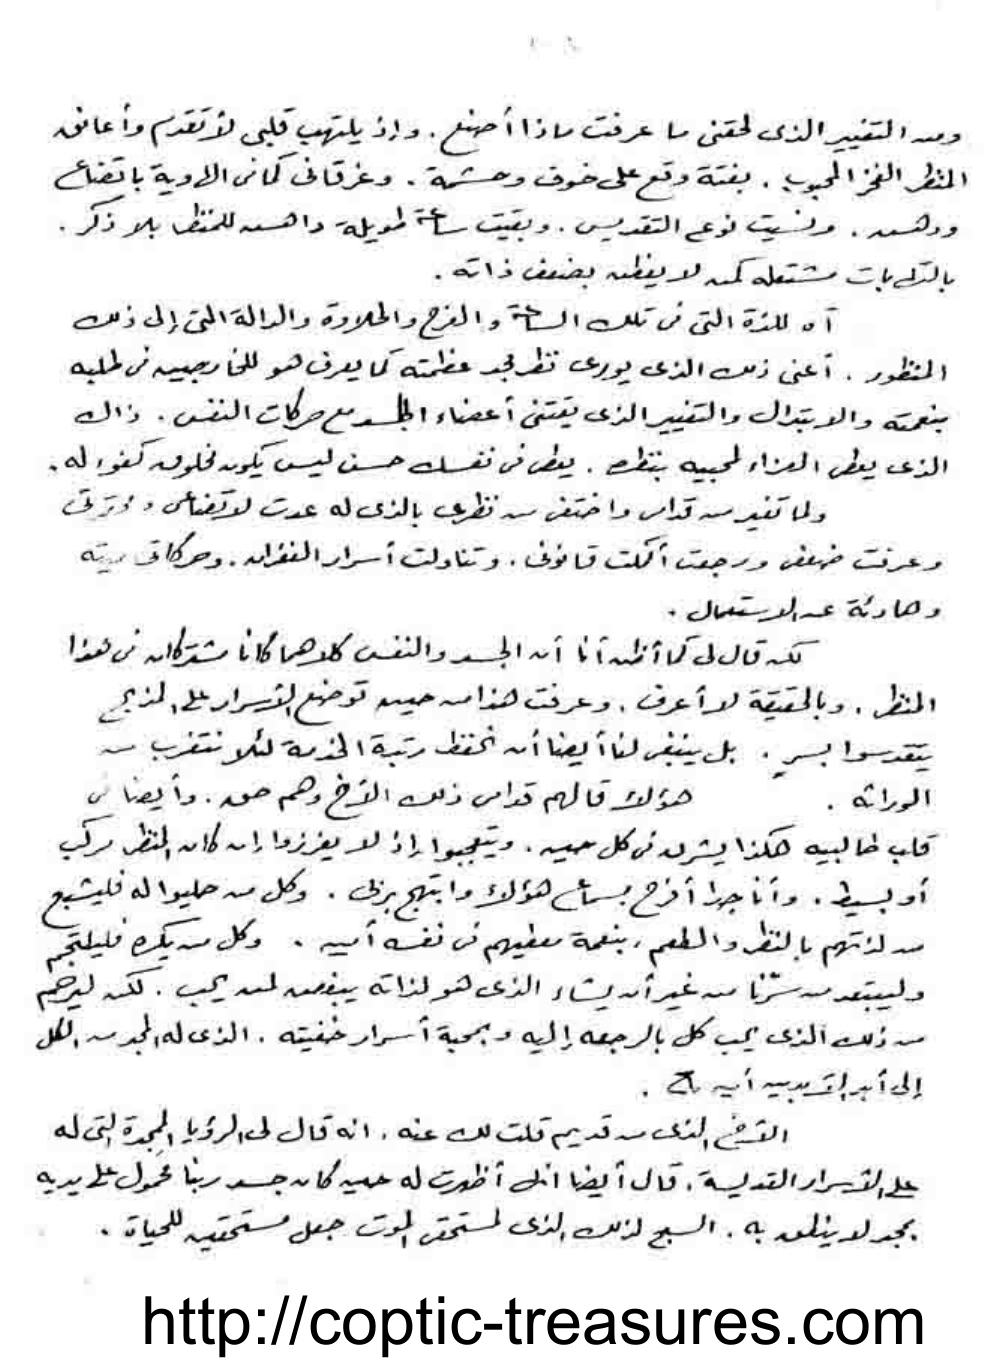 ومن التغيير الذى لحقنى ما عرفت ماذا أصنع . وإذ يلتهب قلبى لأتقدم وأعانق
المنظر الفخز المحبوب . بغتة وقع على خوف وحشمة . وغرقانى كمافى الاودية باتضاع
ودهس . ونسيت نوع التقديس . وبقيت ساعة طويلة داهس للمنظر بلا ذكر .
بالتى بات مشتعله كمن لا يفطن بضعف ذاته .
آه للذة التى فى تلك الساعة والفرح والحلاوة والدالة التى إلى ذلك
المنظور . أعنى ذلك الذى يورى نظر مجد عظمته كما يعرف هو للخارجيين فى طلبه
بنعمته والابتدال والتغيير الذى يقتنى أعضاء الجسد مع حركات النفس . ذاك
الذى يعطى العزاء لمحبيه بنظره . يعطى فى نفسك حسن ليس يكون مخلوق كفوء له .
ولما تغير من قدامى واختفى من نظرى بالذى له عدت لاتضاعى و
وعرفت ضعفى ورجعت أكملت قانونى . وتناولت أسرار الغفران . وحركاتى ميته
وهادئة عن الاستعمال .
لكن قال لى كما أظن أنا أن الجسد والنفس كلاهما كانا مشتركان فى هذا
المنظر . وبالحقيقة لا أعرف . وعرفت هذا من حين توضع الأسرار على المذبح
يتقدسوا بسر . بل ينبغى لنا أيضا أن نحفظ رتبة الخدمة لئلا نتغرب من
الوراثه . هؤلاء قالهم قدامى ذلك الأخ وهم حق . وأيضا فى
قلب طالبيه هكذا يشرق فى كل حين . ويتعجبوا إذ لا يفرزوا إن كان المنظر مركب
أو بسيط . وأنا جدا أفرح بسماع هؤلاء وابتهج بربى . وكل من حليوا له فليشبع
من لذتهم بالنظر والطعم ، بنعمة معطيهم فى نفسه أمين . وكل من يكره فليلتجم
وليبتعد من سرّنا من غير أن يشاء الذى هو لذاته يبغض لمن يحب . لكن ليرحم
من ذلك الذى يحب كل بالرجعه إليه وبمحبة أسرار خفيته . الذى له المجد من الكل
إلى أبد الآبدين أمين .
الأخ الذى من قديم قلت لك عنه . انه قال لى الرؤيا الممجدة التى له
على الأسرار القدسية . قال أيضا انى أظهرت له حين كان جسد ربنا محمول على يديه
بمجد لا ينطق به . السبح لذلك الذى لمستحقى الموت جعل مستحقين للحياة .
http://coptic-treasures.com